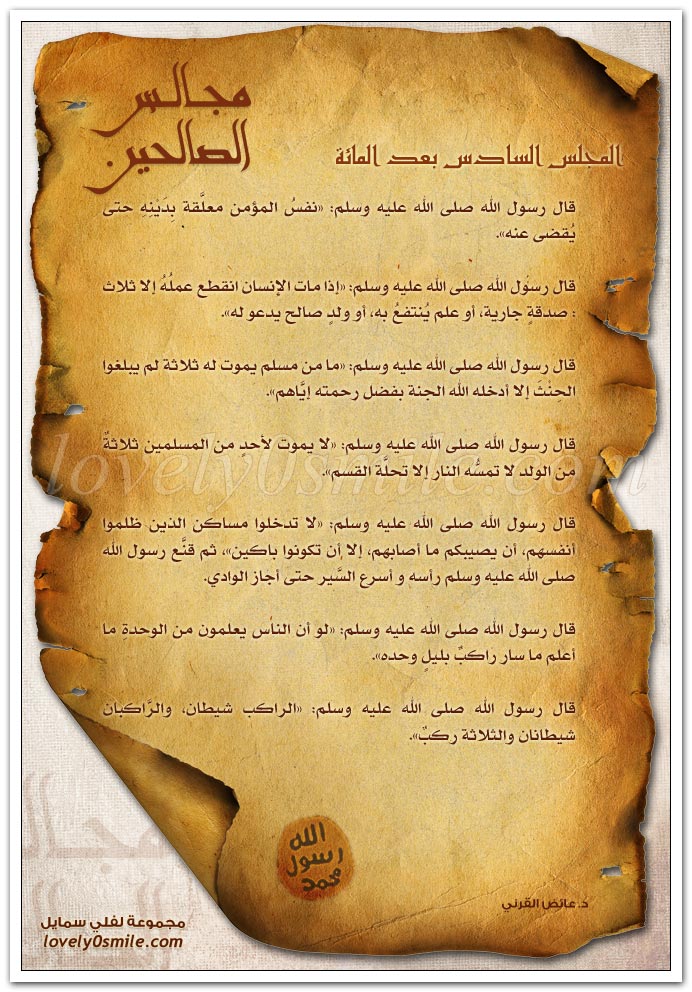 مجالس
الصالحين
المجلس السادس بعد المائة
قال رسول الله صلى الله عليه وسلم: «نفسُ المؤمن معلَّقة بِدَيْنِهِ حتى
يُقضى عنه».
قال رسول الله صلى الله عليه وسلم: «إذا مات الإنسان انقطع عملُهُ إلا ثلاث
: صدقةٍ جارية، أو علم يُنتفعُ به، أو ولدٍ صالح يدعو له».
قال رسول الله صلى الله عليه وسلم: «ما من مسلم يموت له ثلاثة لم يبلغوا
الحنْثَ إلا أدخله الله الجنة بفضل رحمته إيَّاهم».
قال رسول الله صلى الله عليه وسلم: «لا يموت لأحدٍ من المسلمين ثلاثةٌ
من الولد لا تمسُّه النار إلا تحلَّة القسم».
قال رسول الله صلى الله عليه وسلم: «لا تدخلوا مساكن الذين ظلموا
أنفسهم، أن يصيبكم ما أصابهم، إلا أن تكونوا باكين»، ثم قنَّع رسول الله
صلى الله عليه وسلم رأسه و أسرع السَّير حتى أجاز الوادي.
قال رسول الله صلى الله عليه وسلم: «لو أن الناس يعلمون من الوحدةِ ما
أعلم ما سار راكبٌ بليلٍ وحده».
قال رسول الله صلى الله عليه وسلم: «الراكب شيطان، والرَّاكبان
شيطانان والثلاثة ركبٌ».
lovely0smile.com
الله
رسول
محمد
د.عائض القرني
مجموعة لفلي سمايل
lovely0smile.com